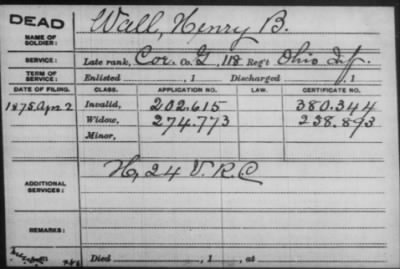 DEAD
NAME OF SOLDIER: Wall, Henry B.
SERVICE: Late rank, Cor. Co. G, 118 Reg't Ohio Inf.
TERM OF SERVICE: Enlisted , 1 Discharged , 1
DATE OF FILING. CLASS. APPLICATION NO. LAW. CERTIFICATE NO.
1875 Apr 2 Invalid, 202.615 380.344
Widow, 274.773 238.893
Minor,
ADDITIONAL SERVICES: H, 24 V.R.C
REMARKS:
Died , 1 , at